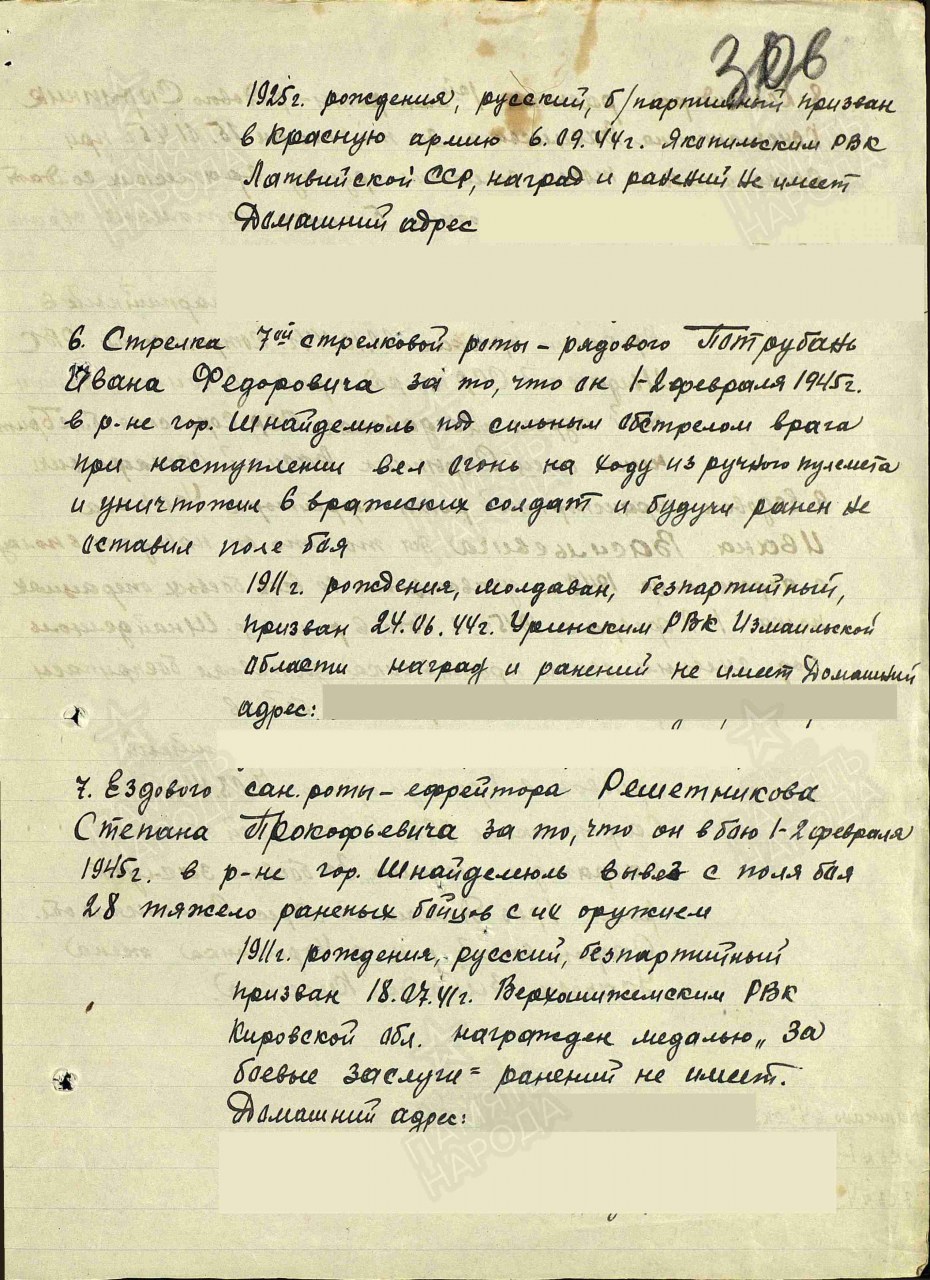 306
1925г. рождения, русский, б/партийный призван
в Красную армию 6.09.44г. Якопильским РВК
Латвийской ССР, наград и ранений не имеет
Домашний адрес
6. Стрелка 7ой стрелковой роты – рядового Потрубань
Ивана Федоровича за то, что он 1-2 февраля 1945г.
в р-не гор. Шнайдемюль под сильным обстрелом врага
при наступлении вел огонь на ходу из ручного пулемета
и уничтожил 6 вражеских солдат и будучи ранен не
оставил поле боя
1911г. рождения, молдаван, безпартийный,
призван 24.06.44г. Уринским РВК Измаильской
области наград и ранений не имеет Домашний
адрес:
7. Ездового сан. роты – ефрейтора Решетникова
Степана Прокофьевича за то, что он в бою 1-2 февраля
1945г. в р-не гор. Шнайдемюль вывез с поля боя
28 тяжело раненых бойцов с их оружием
1911г. рождения, русский, безпартийный
призван 18.07.41г. Верхошижемским РВК
Кировской обл. награжден медалью „За
боевые заслуги" ранений не имеет.
Домашний адрес:
ПАМЯТЬ
НАРОДА